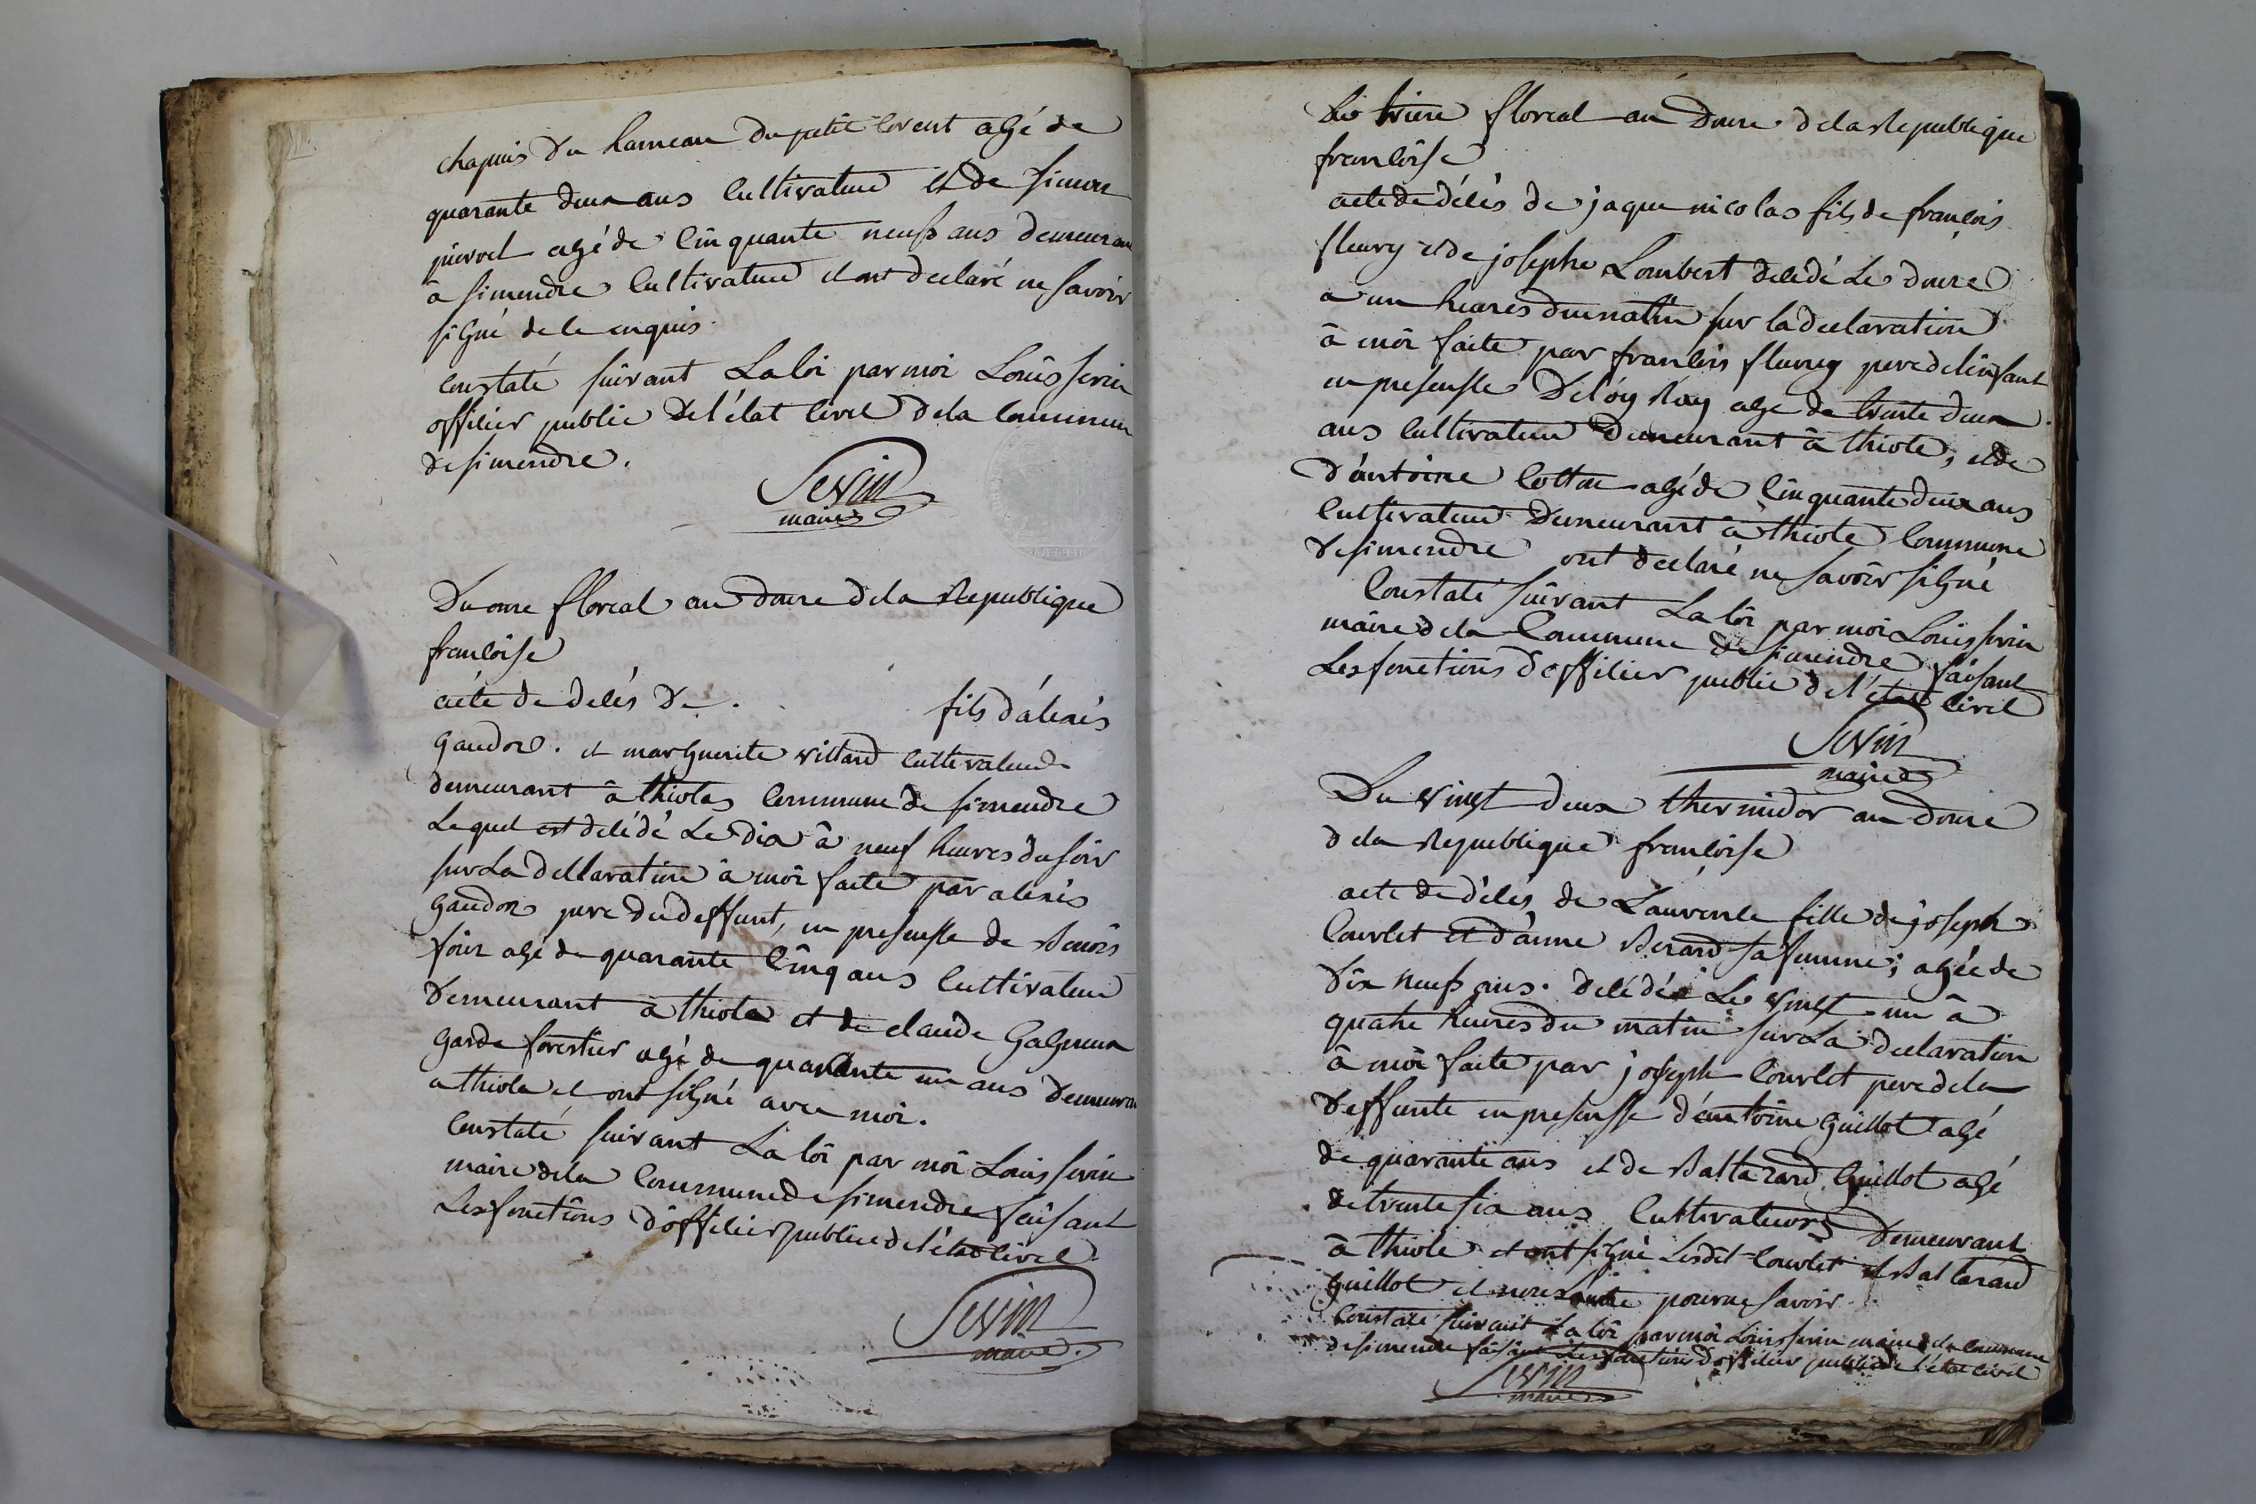 chapuis du hameau du petit corent agé de
quarante deux ans cultivateur et de simon
pierrot agé de cinquante neuf ans demeurant
à simendre cultivateur et ont declaré ne savoir
signé de ce enquis.
constaté suivant La loi par moi Louis sevin
officier public de l'état civil de la commune
de simendre.
Sevin
maire
Du onze floreal an douze de la Republique
francoise
acte de delés de . fils d'alexis
gaudon. et marguerite villard cultivateur
demeurant à thiole commune de simendre
Lequel est delédé Le dix à neuf heures du soir
sur La dellaration à moi faite par alexis
gaudon pere du deffunt, en presensse de Benois
agé de quarante cinq ans cultivateur
demeurant à thiole et de claude
garde forestier agé de quarante un ans demeurant
a thiole et ont signé avec moi.
constaté suivant La loi par moi Louis sevin
maire de la commune de simendre faisant
Les fonctions d'officier public de l'état civil
Sevin
maire
Du treize floreal an douze de la Republique
francoise
acte de délés de jaque nicolas fils de françois
fleury et de josephe Lombert delédé Le douze
a un heures du matin sur la declaration
à moi faite par francois fleury pere de l'enfant
en presensse D'eloy Ray agé de trente deux
ans cultivateur demeurant à thiole, et de
d'antoine cottin agé de cinquante deux ans
cultivateur demeurant à thiole commune
de simendre ont declaré ne savoir signé
Constaté suivant La loi par moi Louis sevin
maire de la commune de simendre faisant
Les fonctions d'officier public de l'état civil
Sevin
maire
Du vingt deux thermidor an douze
de la Republique francoise
acte de délés de Laurence fille de joseph
Courlet et d'anne Berard sa femme; agée de
dix neuf ans. delédée Le vingt un à
quatre heures du matin sur La declaration
à moi faite par joseph Courlet pere de la
deffunte en presensse d'antoine guillot agé
de quarante ans et de Baltazard guillot agé
de trente six ans cultivateurs demeurant
à thiole et ont signé Lesdit Courlet et Baltazard
guillot et non pour ne savoir
Constaté suivant La loi par moi Louis sevin maire de la commune
de simendre faisant Les fonctions d'officier public de l'état civil
Sevin
maire